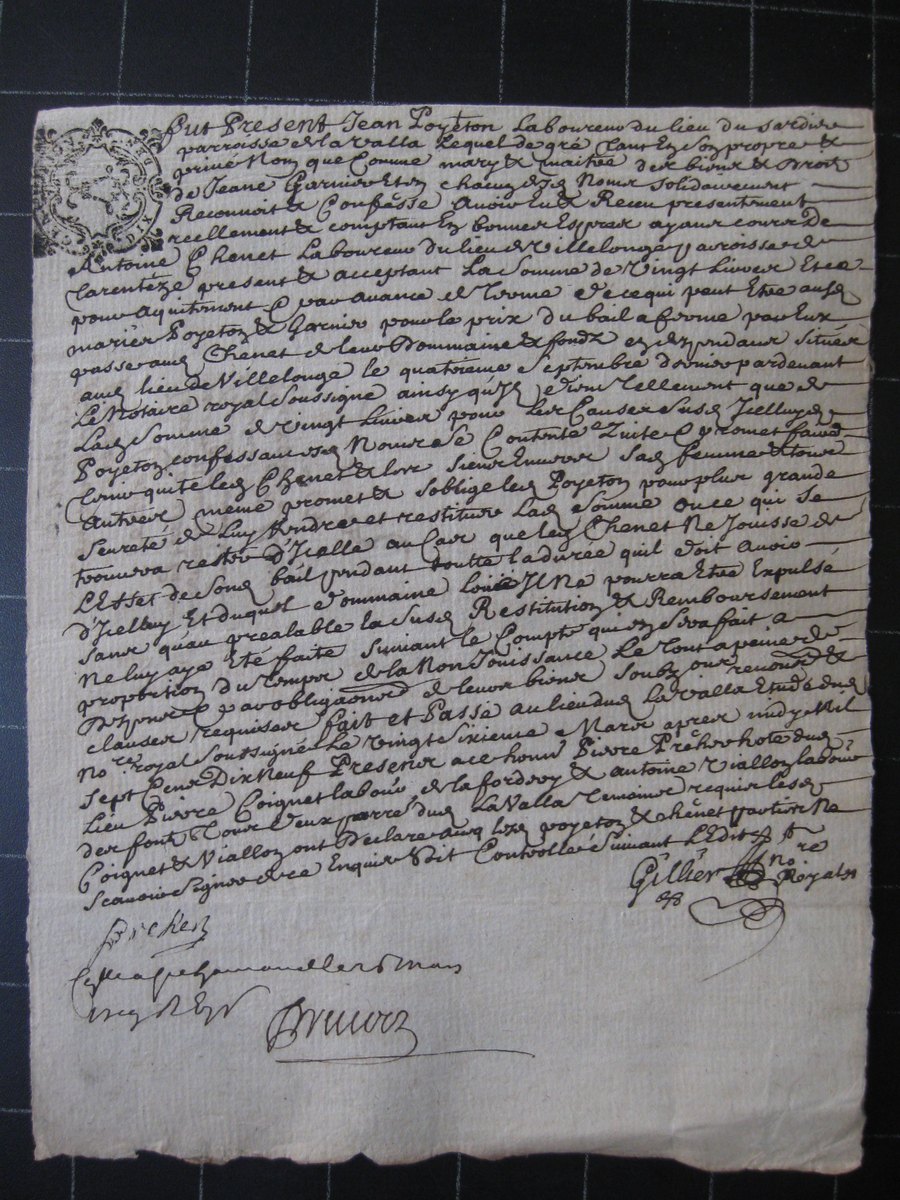 Fut Present Jean Poyeton Laboureur du lieu du sardier
parroisse de la valla Lequel de gré tant En Son propre et
privé Nom que Comme mary & maitre des biens & Droits
de Jeane Garnier Et En chacun desd Noms solidairement
Reconnoit & Confesse Avoir Eu & Receu presentement
reellement & comptant En bonnes Espces ayant cours De
Antoine Chenet Laboureur du lieu de Villelonge parroisse de
tarenteze present & acceptant La Somme de Vingt Livres Et ce
pour aquitement & par avance de terme de ce qui peut Etre ausd
mariés Poyeton & Garnier pour le prix du bail a ferme par Eux
passé aud Chenet de leur Dommaine & fondz en dependant situés
aud lieu de Villelonge le quatrieme Septembre dernier pardevant
Le Notaire royal soussigné ainsy qu'Ils disent tellement que de
Lad Somme de vingt Livres pour Les Causes susd Icelluy
Poyeton confessant esd Noms se Contente quitte & promet faire
tenir quitte led Chenet & les siens Envers sad femme & tous
autres même promet & s'oblige led Poyeton pour plus grande
seureté de Luy Rendre et restituer Lad Somme ou ce qui se
trouvera rester D'Icelle au Cas que led Chenet Ne Jouisse de
L'Effet de Son bail pendant toutte la durée qu'il doit avoir
D'Icelluy Et duquel dommaine Loüé Il Ne pourra Etre Expulsé
sans qu'au prealable la Susd Restitution & Remboursement
Ne luy aye Eté faite suivant le Compte qui en Sera fait a
proportion du temps de la Non Jouissance Le tout a peine de
Despens & par obligaon de leurs biens soubz renoncé &
clauses requises Fait et Passé au lieu de La Valla Etude dud
No.re royal Soussigné Le vingt sixieme Mars apres midy Mil
sept Cens Dix Neuf Presens a ce honn Pierre Prêher hôte dud
Lieu Pierre Coignet labour de la fordevy & antoine Viallon labour
des font tous deux parré dud La Valla temoins requis Lesd
Coignet & Viallon ont Declaré avec lesd poyeton & chênet parties Ne
scavoir signer de ce Enquis Soit Controllé Suivant L'Edit
Gillier no.re
Royal